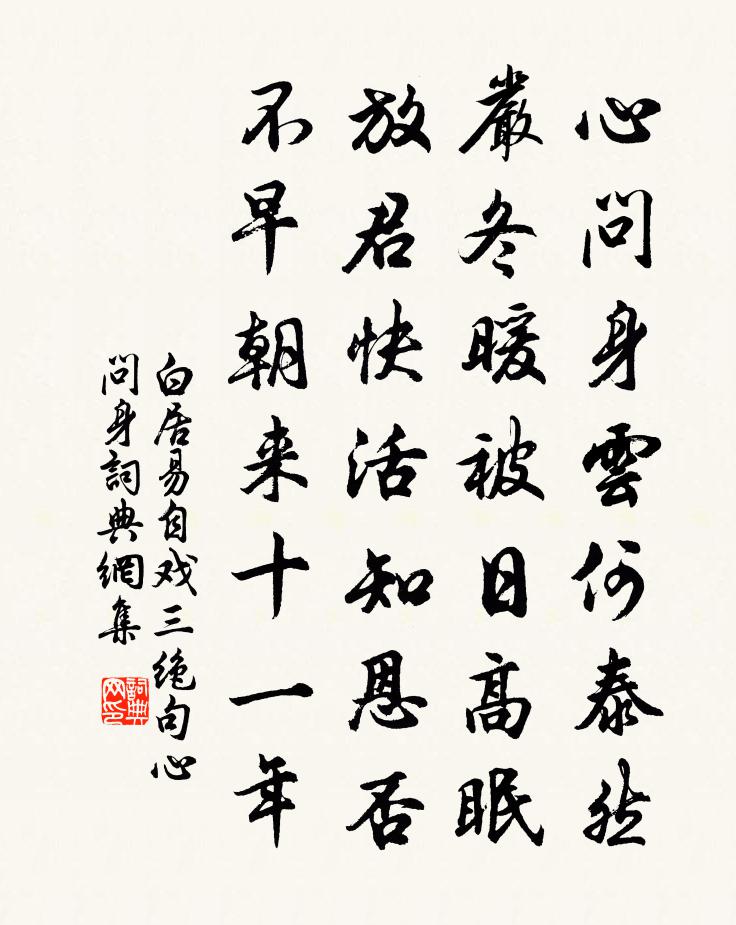 心問身雲何泰然
嚴冬暖被日高眠
放君快活知恩否
不早朝来十一年
白居易自戏三绝句心
問身詞典網集
詞典
网印